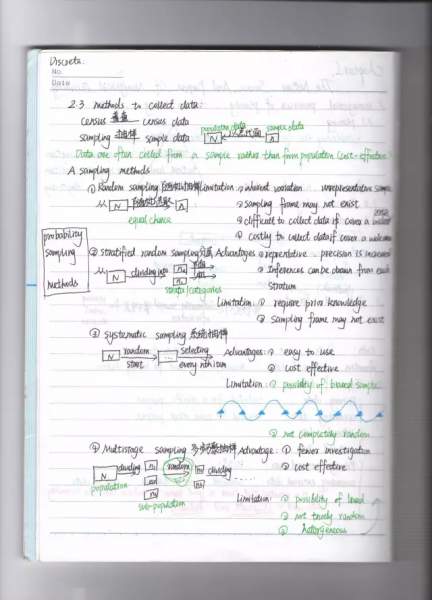 Discrete.
No.
Date
2.3 methods to collect data:
census 普查 census data
sampling 抽样 sample data population data N 以偏代全 n sample data
Data are often collected from a sample rather than from population (cost-effective
A sampling methods
① Random sampling Limitation: ① inherent variation unrepresentative sample
μ N n ② sampling frame may not exist
equal chance ③ difficult to collect data if cover a
④ costly to collect data if cover a
probability
sampling
methods
② stratified random sampling Advantages: ① precision is increased
μ N dividing into n₁ ② Inferences can be drawn from each
strata/categories stratum
Limitation: ① require prior knowledge
② sampling frame may not exist
③ systematic sampling 系统抽样
N random start ... selecting every nth item Advantages: ① easy to use
② cost effective
Limitation: ① posibility of biased sample
② not completely random
④ Multistage sampling Advantage: ① fewer investigation
N dividing n₁ random n₁ dividing ... ② cost effective
population
sub-population Limitation: ① posibility of
② not truely random
③